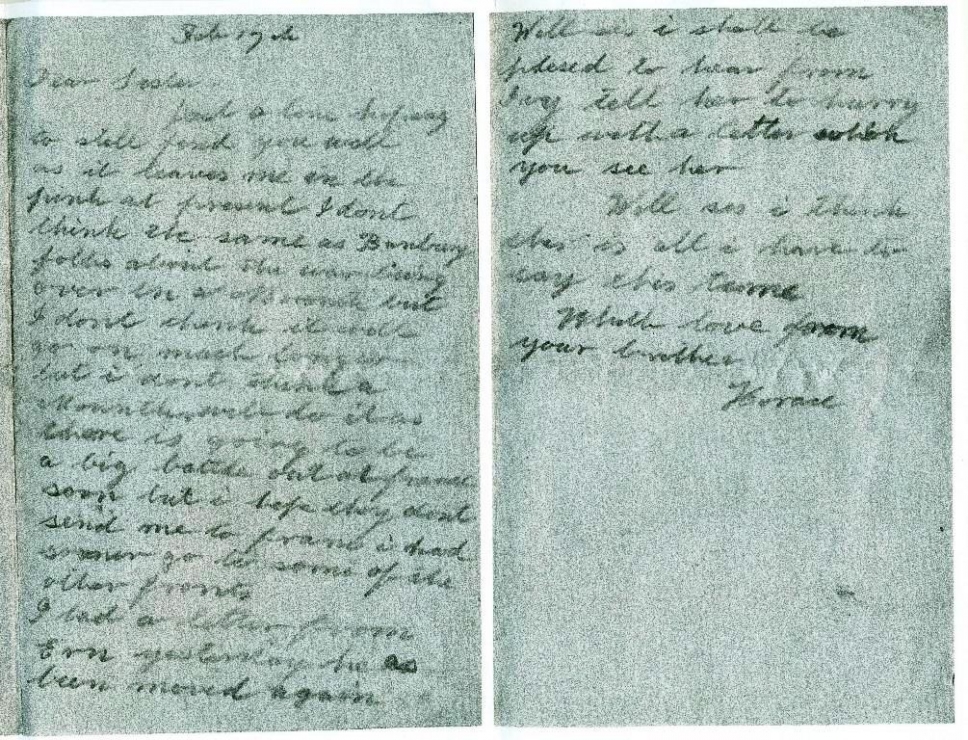 Feb 17th
Dear Sister
Just a line hoping
to still find you well
as it leaves me in the
pink at present I dont
think the same as Banbury
folks about the war being
over in a Month but
I dont think it will
go on much longer
but i dont think a
Mounth will do it as
there is going to be
a big battle out at france
soon but i hope they dont
send me to france i had
sooner go to some of the
other fronts
I had a letter from
Ern yesterday he as
been moved again
Well sis i shall be
plesed to hear from
Ivy tell her to hurry
up with a letter when
you see her
Well sis i think
this is all i have to
say this time
With love from
your brother
Horace